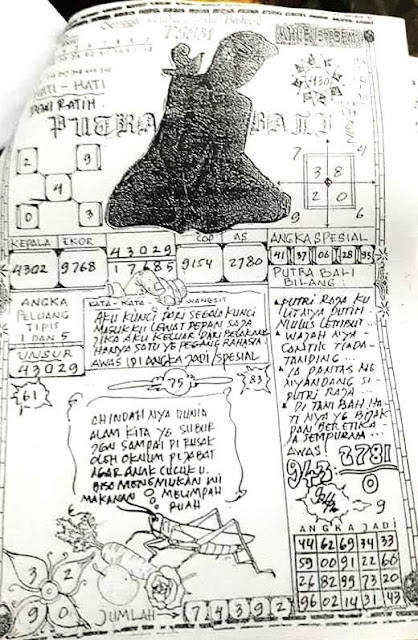 75531
HATI - HATI
DEWI RATIH
430
SENIN
PUTRA BALI
2 9
4
0 3
7 4
3 8
2 0
9 6
KEPALA EKOR COP AS
4302 9768 9154 2780
43029
17685
ANGKA SPESIAL
41 37 06 28 95
PUTRA BALI
BILANG:
ANGKA
PELUANG
TIPIS
1 DAN 5
UNSUR
43029
61
KATA - KATA WANGSIT
AKU KUNCI DARI SEGALA KUNCI
MASUKKU LEWAT DEPAN SAJA
JIKA AKU KELUAR DARI BELAKANG
HANYA SATU YG PEGANG RAHASIA
AWAS DI ANGKA JADI/SPESIAL
75
83
OH INDAH NYA DUNIA
ALAM KITA YG SUBUR
JGN SAMPAI DI RUSAK
OLEH OKNUM PEJABAT
AGAR ANAK CUCUK U.
BISA MENGNIUKAN INI
MAKANAN MELIMPAH
RUAH
PUTRI RAJA KU
LIT NYA PUTIH
MULUS LEMBUT
WAJAH NYA
CANTIK TIADA
TANDING...
IA PANTAS ME
NYANDANG SI
PUTRI RAJA
DI TAMBAH HA
TI NYA YG BIJAK
DAN BERETIKA
IA SEMPURNA...
AWAS!
943 2781
0
9
ANGKA JADI
44 62 69 34 33
59 00 91 22 66
26 82 99 73 20
96 02 14 31 43
3 2
9 0
JUMLAH 7 4 3 9 2